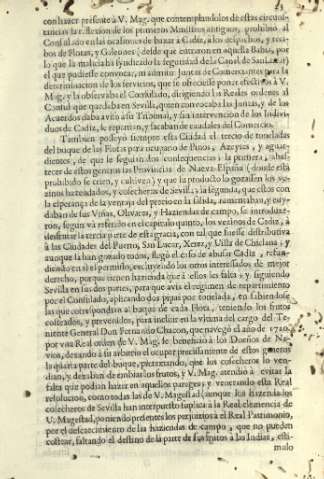 con hazer presente à V. Mag. que contemplandolos de estas circunstancias la reflexion de los primeros Ministros antiguos, prohibiò al
Consulado en las ocasiones de baxar à Cadiz, à los despachos, y
bos de Flotas, y Galeones (desde que entraron en aquella Bahia, por
lo que la malicia ha syndicado la seguridad de la Canal de SanLucar)
el que pudiesse convocar, ni admitir Juntas de Comerciantes para la
determinacion de los servicios, que se ofreciesse poner efectivos à V.
Mag. y lo observaba el Consulado, dirigiendo las Reales ordenes al
Consul que quedaba en Sevilla, quien convocaba las Juntas, y de los
Acuerdos daba aviso à su Tribunal, y sin intervencion de los Individuos
de Cadiz, se repartian, y sacaban de caudales del Comercio.
Tambien posseyò siempre esta Ciudad el tercio de toneladas
del buque de las Flotas para ocuparlo de Vinos, Azeytes, y aguardientes,
de que se seguian dos consequencias: la primera, abastecer
de estos generos las Provincias de Nueva-España (donde està
prohibido se crien, y cultiven) y que la producto lo gozassen los vezinos
hazendados, y cosecheros de Sevilla; la segunda, que estos con
la esperança de la ventaja del precio en la salida, fomentaban, y cuydaban
de sus Viñas, Olivares, y Haziendas de campo, se introduxeron,
segun và referido en el capitulo quinto, los vezinos de Cadiz, à
desfrutar la tercia parte de esta gracia, con tal que fuesse distributiva
à las Ciudades del Puerto, San Lucar, Xerez, y Villa de Chiclana; y
aunque la han gozado todos, llegò el caso de abusar Cadiz,
en sì el permisso, excluyendo los otros interessados de mejor
derecho, porque tienen hazienda que à ellos les falta; y siguiendo
Sevilla en sus dos partes, para que avia el regimen de repartimiento
por el Consulado, aplicando dos pipas por tonelada, en
las que correspondian al buque de cada Flota, teniendo sus frutos
costeados, y prevenidos, para incluir en la vltima del cargo del Teniente
General Don Fernando Chacon, que navegò el año de 1720.
por vna Real orden de V. Mag. se beneficiò à los Dueños de Navios,
dexando à su arbitrio el ocupar precisamente de estos generos
la quarta parte del buque, pretextando, que los cosecheros lo vendian,
y dexaban de embiar los frutos, y V. Mag. atendiò à evitar la
falta que podian hazer en aquellos parages; y venerando esta Real
resolucion, como todas las de V. Magestad, aunque los hazendados
cosecheros de Sevilla han interpuesto suplica à la Real clemencia de
V. Magestad, poniendo presentes los perjuizios al Real Patrimonio,
por el descaecimiento de las haziendas de campo, que no pueden
costear, faltando el destino de la parte de sus frutos à las Indias, estimulo